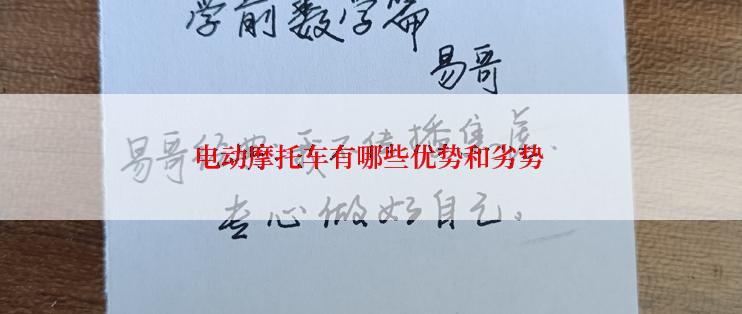 学前数学篇
易哥
易哥经典：我不传播焦虑、
电动摩托车有哪些优势和劣势
专心做好自己。